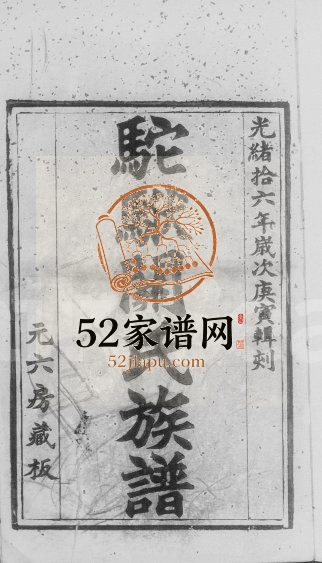 光緒拾六年歲次庚寅輯刻
駝
氏族譜
元六房藏板
52家谱网
52jiapu.com